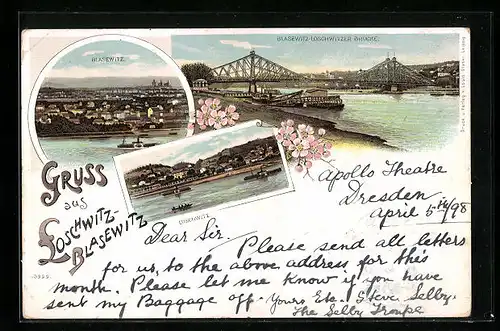 BLASEWITZ.
BLASEWITZ-LOSCHWITZER BRÜCKE.
LOSCHWITZ
GRUSS
aus
LOSCHWITZ-
BLASEWITZ
3959.
Apollo Theatre
Dresden
April 5th/98
Dear Sir
Please send all letters
for us, to the above address for this
month. Please let me know if you have
sent my Baggage off. Yours Etc. Steve Selby.
The Selby Troupe